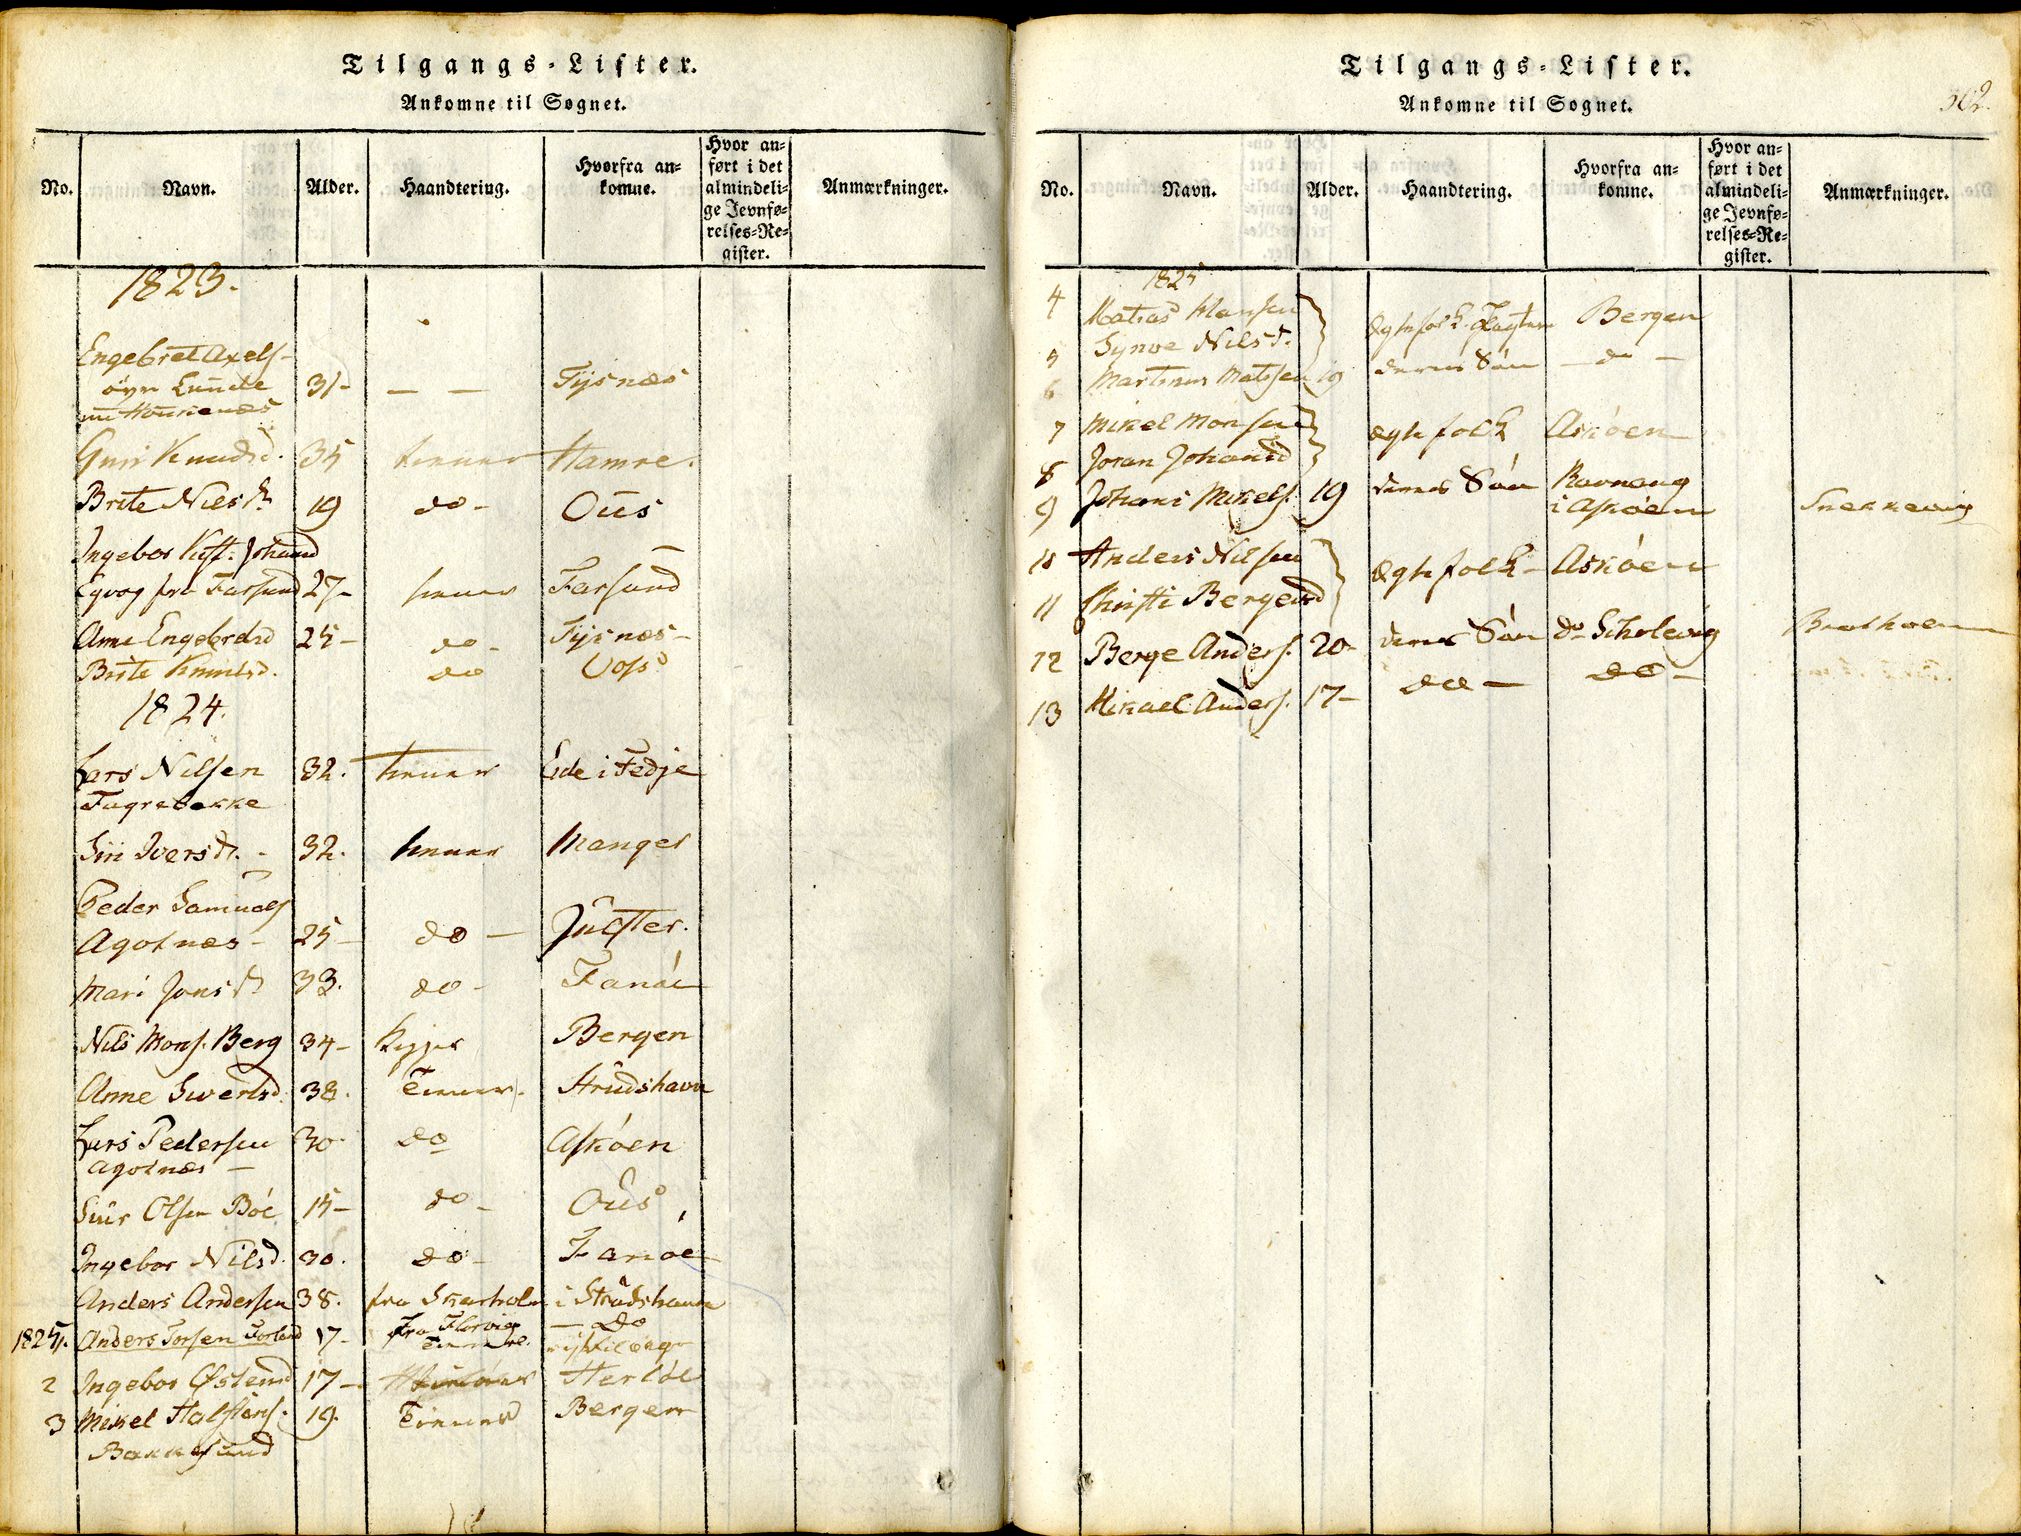 Tilgangs-Lister.
Ankomne til Sognet.
No. Navn. Alder. Haandtering. Hvorfra an-komne. Hvor an-ført i det almindeli-ge Jevnfø-relses-Re-gister. Anmærkninger.
1823.
Engebret Axels-
øyr Lunde 31- — — Tysnæs
nu
Guri Knudsd. 35 tiener Hamre.
Brite Nilsd. 19 do- Ous
Ingebor Johansd
fra Farsund 27- tiener Farsund
Anne Engebrdsd 25- do- Tysnæs-
Brite Knudsd. do Voss
1824.
Lars Nilsen 32. tiener i Fedje
Fagrebakke
Siri Iversd. - 32. tiener Manger
Peder Samuels
Agotnæs- 25- do- Julster.
Mari Jonsd 33. do- Fanøe
Nils Mons. Berg 34- Bergen
Anne Sivertsd. 38. Tiener. Strudshavn
Lars Pedersen 30- do Askøen
Agotnæs —
Siur Olsen Böe 15- do- Ous
Ingebor Nilsd. 30. do- Fanøe
Anders Andersen 38. fra Skarholm i Strudshavn
1825. Anders Torsen Forland 17- fra Florvig — Do
2 Ingebor Østensd 17- Herløe
3 Mikel Halstens. 19. Tiener Bergen
Bakkesund
Tilgangs-Lister.
Ankomne til Sognet.
302.
No. Navn. Alder. Haandtering. Hvorfra an-komne. Hvor an-ført i det almindeli-ge Jevnfø-relses-Re-gister. Anmærkninger.
1825
4 Matias Hansen Ægtefolk Bergen
5 Synve Nilsd.
6 Martinus Matisen 19 deres Søn — do —
7 Mikel Monsen Ægtefolk Askøen
8 Joran Johansd
9 Johans Mikels. 19 deres Søn Ravnang
i Askøen Snekkevig
10 Anders Nilsen Ægtefolk- Askøen
11 Christi Bergesd
12 Berge Anders. 20- deres Søn do Scholevig
13 Mikael Anders. 17- do — do -